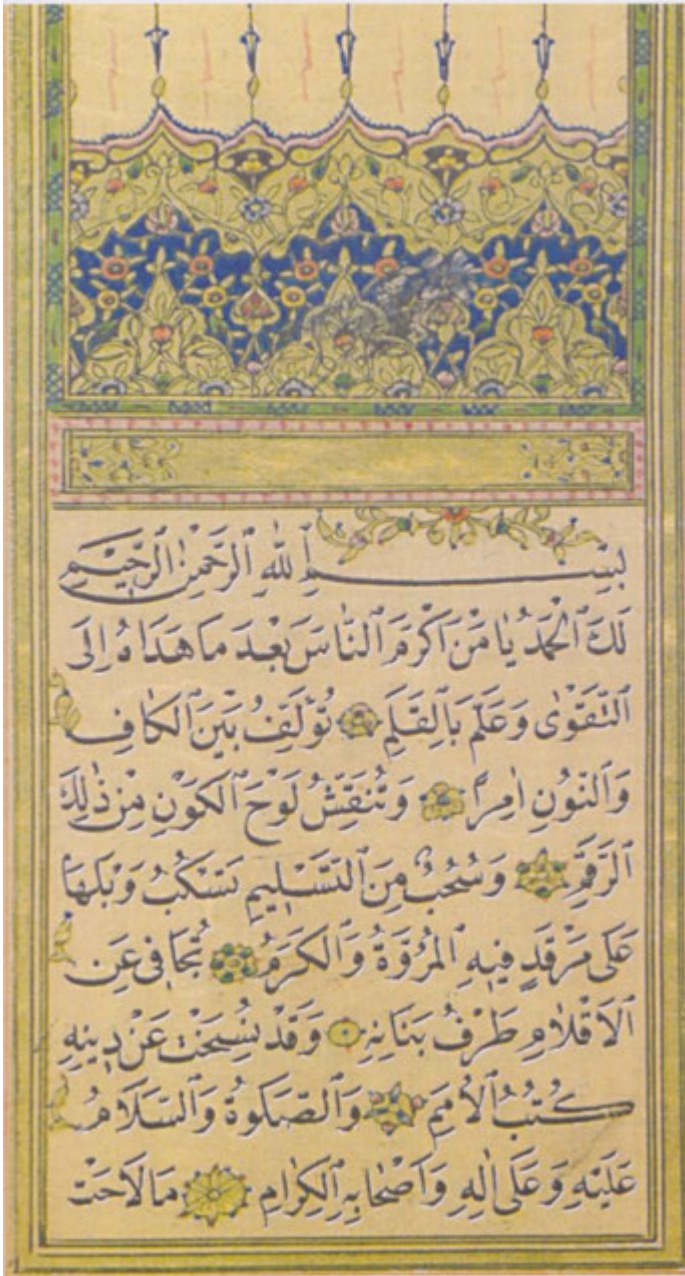 بِسْمِ اللّٰهِ الرَّحْمٰنِ الرَّحِيْمِ
لَكَ الْحَمْدُ يَا مَنْ اَكْرَمَ النَّاسَ بَعْدَ مَا هَدَاهُ اِلَى
التَّقْوٰى وَعَلَّمَ بِالْقَلَمِ تُؤَلِّفُ بَيْنَ الْكَافِ
وَالنُّونِ اٰمِرًا وَتُنَقِّشُ لَوْحَ الْكَوْنِ مِنْ ذٰلِكَ
الرَّقَمِ وَسُحْبٌ مِنَ التَّسْلِيمِ تَسْكُبُ وَبْلَهَا
عَلَى مَرْقَدٍ فِيهِ الْمُرُوَّةُ وَالْكَرَمُ تُجَافِي عَنِ
الْاَقْلَامِ طَرْفُ بَنَانِهِ وَقَدْ نُسِخَتْ عَنْ دِينِهِ
كُتُبُ الْاُمَمِ وَالصَّلٰوةُ وَالسَّلَامُ
عَلَيْهِ وَعَلَى اٰلِهِ وَاَصْحَابِهِ الْكِرَامِ مَا لَاحَتْ